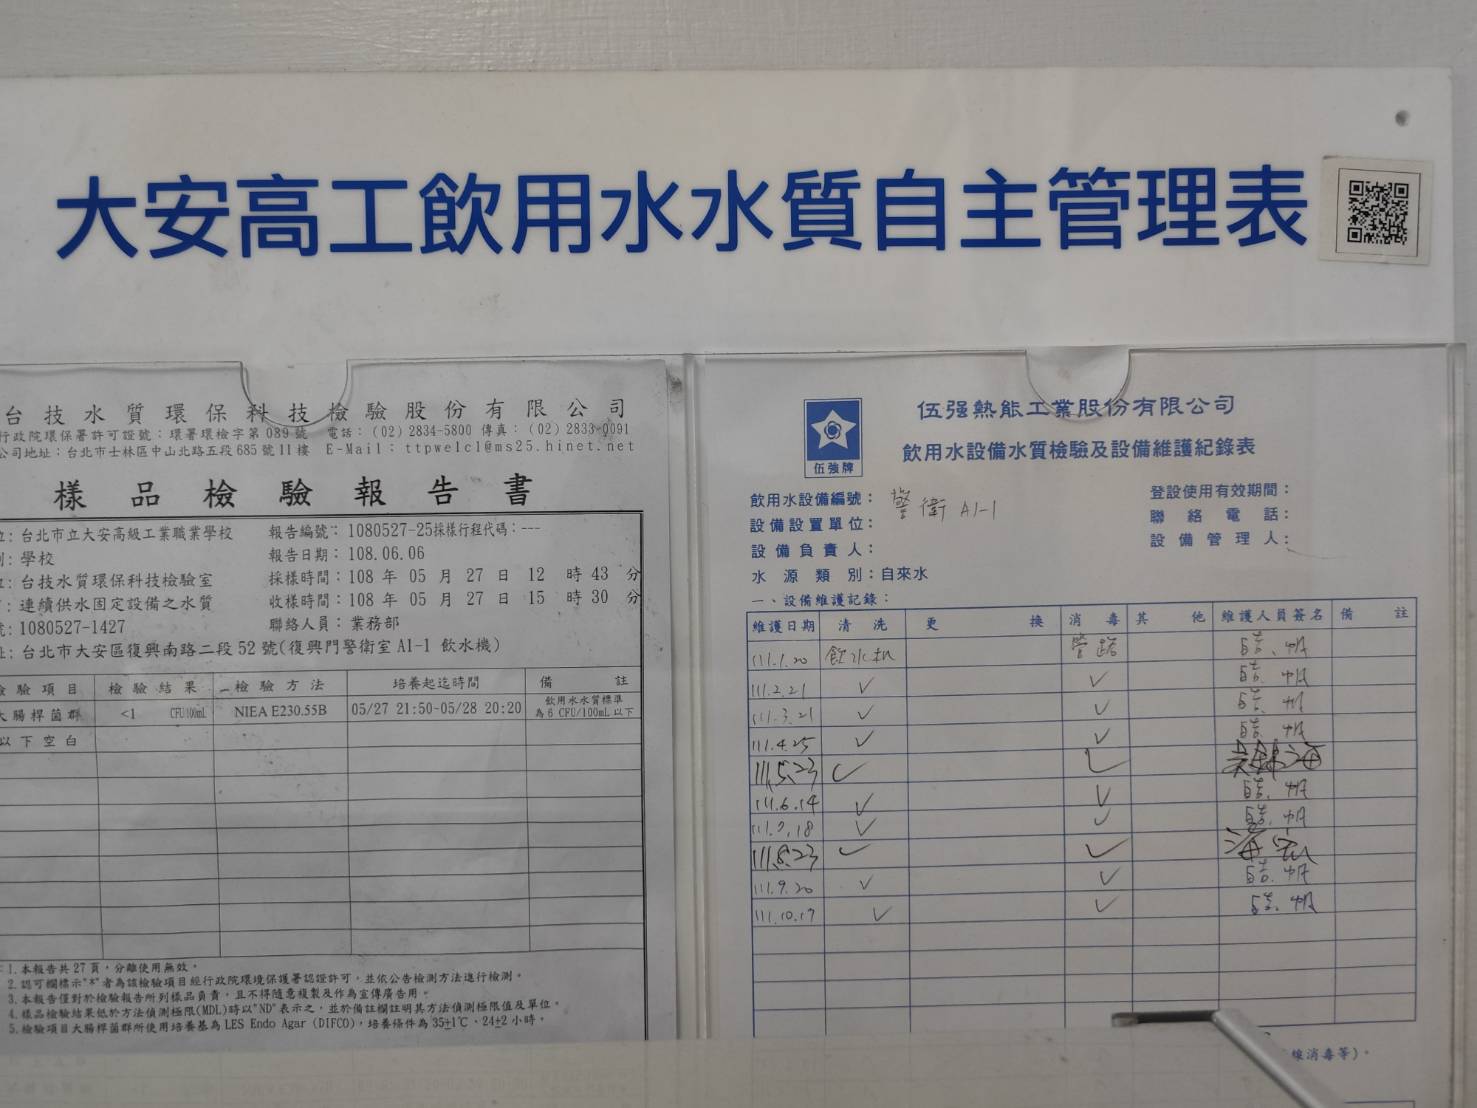 大安高工飲用水水質自主管理表
台技水質環保科技檢驗股份有限公司
行政院環保署許可證號：環署環檢字第089號 電話：(02) 2834-5800 傳真：(02) 2833-0091
公司地址：台北市士林區中山北路五段685號11樓 E-Mail：ttpwelcl@ms25.hinet.net
樣品檢驗報告書
台北市立大安高級工業職業學校 報告編號：1080527-25採樣行程代碼：---
學校 報告日期：108.06.06
台技水質環保科技檢驗室 採樣時間：108 年 05 月 27 日 12 時 43 分
連續供水固定設備之水質 收樣時間：108 年 05 月 27 日 15 時 30 分
1080527-1427 聯絡人員：業務部
台北市大安區復興南路二段52號(復興門警衛室A1-1 飲水機)
檢驗項目 檢驗結果 檢驗方法 培養起迄時間 備註
大腸桿菌群 <1 CFU/100mL NIEA E230.55B 05/27 21:50-05/28 20:20 飲用水水質標準
為6 CFU/100mL以下
以下空白
1.本報告共27頁，分離使用無效。
2.認可欄標示"*"者為該檢驗項目經行政院環境保護署認證許可，並依公告檢測方法進行檢測。
3.本報告僅對於檢驗報告所列樣品負責，且不得隨意複製及作為宣傳廣告用。
4.樣品檢驗結果低於方法偵測極限(MDL)時以"ND"表示之，並於備註欄註明其方法偵測極限值及單位。
5.檢驗項目大腸桿菌群所使用培養基為LES Endo Agar (DIFCO)，培養條件為35±1℃、24±2小時。
伍強牌
伍强熱能工業股份有限公司
飲用水設備水質檢驗及設備維護紀錄表
飲用水設備編號：警衛 A1-1 登設使用有效期間：
設備設置單位： 聯絡電話：
設備負責人： 設備管理人：
水源類別：自來水
一、設備維護記錄：
維護日期 清洗 更換 消毒 其他 維護人員簽名 備註
111.1.20 飲水机 管路
111.2.21 ✓ ✓
111.3.21 ✓ ✓
111.4.25 ✓ ✓
111.5.23 ✓ ✓
111.6.14 ✓ ✓
111.7.18 ✓ ✓
111.8.23 ✓ ✓
111.9.20 ✓ ✓
111.10.17 ✓ ✓
線消毒等)。